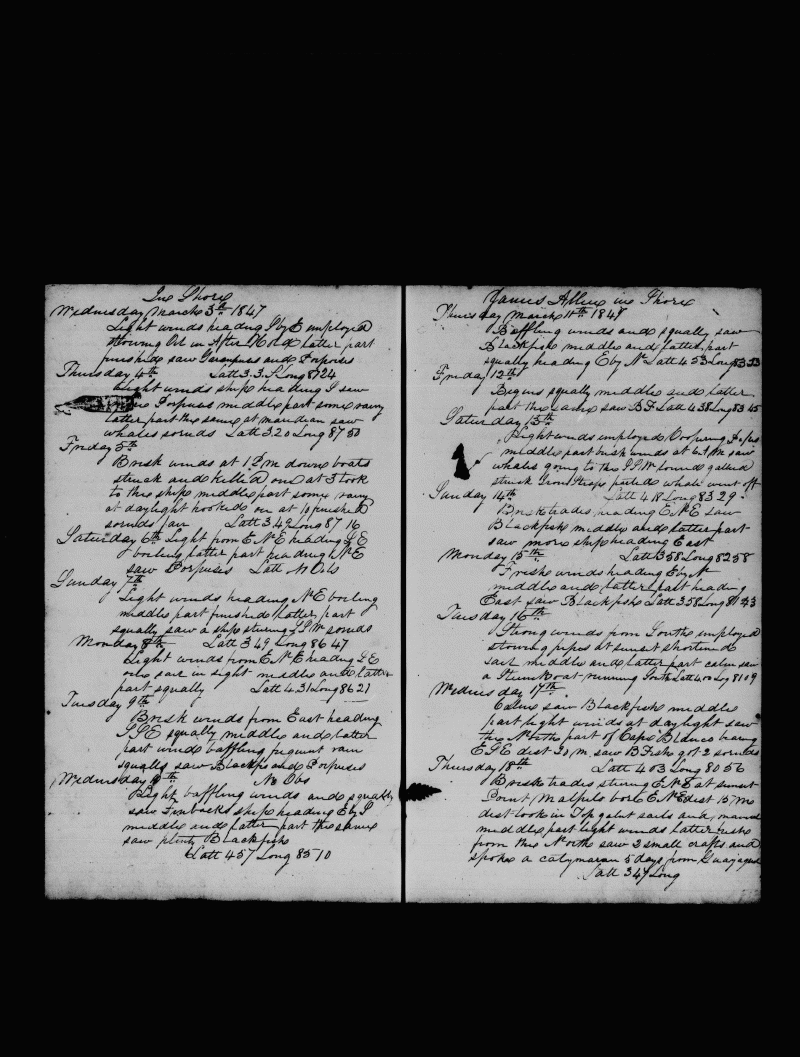 In Shore
Wednesday March 3rd 1847
Light winds heading S by E employed
Stowing Oil in After Hold latter part
finished saw Grampuses and Porpoises
Thursday 4th Latt 3.3.S Long 8724
Light winds ship heading S saw
Porpuses middle part some rainy
latter part the same at maridian saw
whales sounds Latt 3.20 Long 87 50
Friday 5th
Brisk winds at 1 P M down boats
struck and killed one at 3 took
to the ship middle part some rainy
at daylight hooked on at 10 finished
sounds fair Latt 3.49 Long 87 16
Saturday 6th Light from E N E heading S E
boiling latter part heading N E
saw Porpuses Latt No Obs
Sunday 7th
Light winds heading N E boiling
middle part finished latter part
squally saw a ship stering S S W sounds
Monday 8th Latt 3 49 Long 86 47
Light winds from E N E heading S E
one sail in sight middle and latter
part squally Latt 4.31 Long 86 21
Tuesday 9th
Brisk winds from East heading
S S E squally middle and latter
part winds baffling frequent rain
squalls saw Blackfish and Porpuses
Wednesday th No Obs
Light baffling winds and squally
saw Finbacks ship heading E by S
middle and latter part the same
saw plenty Blackfish
Latt 457 Long 85 10
James Allen in Shore
Thursday March 11th 1847
Baffling winds and squally saw
Blackfish middle and latter part
squally heading E by N Latt 4 53 Long 83 53
Friday 12th
Begins squally middle and latter
part the same saw B F Latt 4 38 Long 83 45
Saturday 13th
Light winds employed Coopering
middle part brisk winds at 6 A M saw
whales going to the S S W lowered gallied
struck Iron Strap parted whale went off
Sunday 14th Latt 4 18 Long 83 29
Brisk trades heading E N E saw
Blackfish middle and latter part
saw more ship heading East
Monday 15th Latt 3 58 Long 82 58
Fresh winds heading E by N
middle and latter part heading
East saw Blackfish Latt 3.58 Long 81 43
Tuesday 16th
Strong winds from South employed
stowing pipes at sunset shortened
sail middle and latter part calm saw
a Steam Boat running South Latt 4.00 Long 81 09
Wednesday 17th
Calms saw Blackfish middle
part light winds at daylight saw
the North part of Cape Blanco baring
E S E dist 20 m. saw B Fish got 2 sounds
Thursday 18th Latt 4 03 Long 80 56
Brisk trades stering E N E at sunset
Point Malpelo bore E N E dist 15 M
dist took in Top galnt sails and
middle part light winds latter
from the North saw 2 small crafts and
spoke a catymaran 5 days from Guayaquil
Latt 3 47 Long